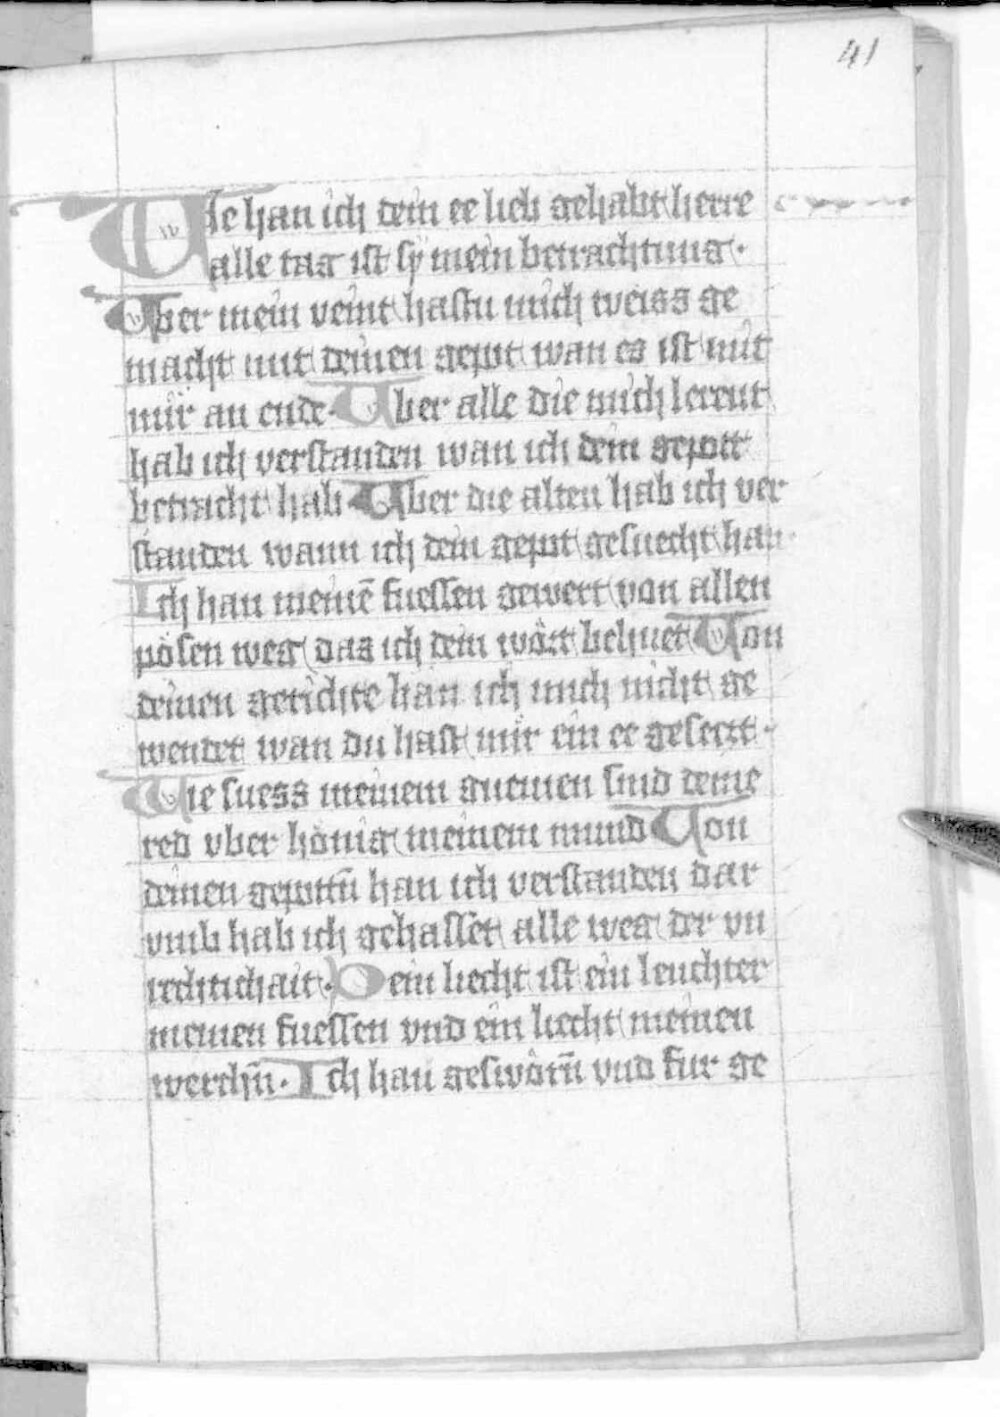 41
WIe han ich dein ee lieb gehabt herre
alle tag ist sÿ mein betrachtung.
Vber mein veint hastu mich weiss ge
macht mit deinen gepot wan es ist mit
mir an ende. Vber alle die mich lerent
hab ich verstanden wan ich dein gepott
betracht hab Vber die alten hab ich ver
standen wann ich dein gepot gesuecht han.
Ich han meinē fuessen gewert von allen
pösen weg das ich dein wört behuet Von
deinen gerichte han ich mich nicht ge
wendet wan du hast mir ein ee gesectt.
Wie suess meinem guemen sind deine
red vber hönig meinem mund Von
deinen gepottn̄ han ich verstanden dar
vmb hab ich gehasset alle weg der vn
rechtichait. Dein liecht ist ein leuchter
meinen fuessen vnd ein liecht meinen
werchn̄. Ich han geswörn̄ vnd fur ge